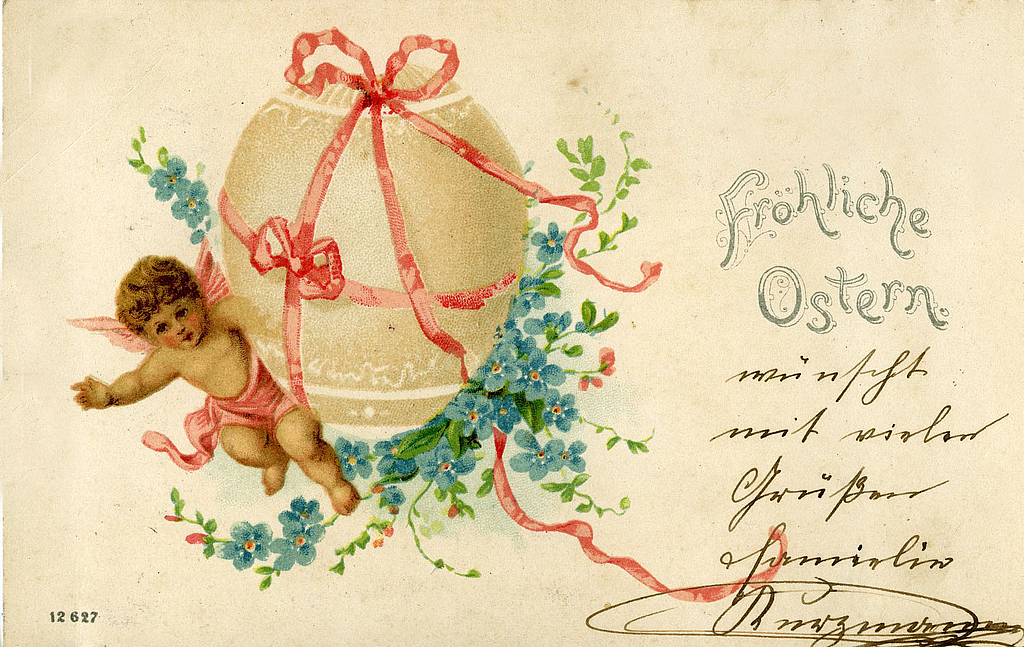 Fröhliche
Ostern.
wünscht
mit vielen
Grüßen
Familie
Kurzmann
12 627